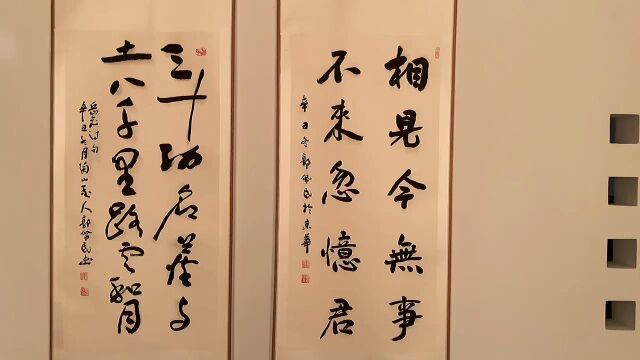 相見今無事
不來忽憶君
辛丑冬郭民於華
三十功名塵与
土八千里路雲和月
岳飛词句
辛丑冬月山人郭民书